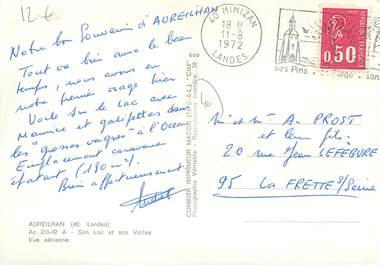 12€
Notre bon Souvenir d'AUREILHAN
Tout va bien avec le beau
temps, nous avons eu
notre premier orage hier
Voile sur le Lac avec
Maurice et galipettes dans
les "grosses vagues" à l'Océan
Emplacement caravane
épatant (190 m²).
Bien affectueusement
AUREILHAN (40. Landes)
Ac 215-42 A - Son Lac et ses Voiles
Vue aérienne.
COMBIER IMPRIMEUR MACON (S.-&-L.) "CIM"
40 MIMIZAN
18 H
11-8
1972
LANDES
ses Pins
0,50
M. et Me A. PROST
et leur fils
20 rue Jean LEFEBURE
95 La FRETTE s/Seine